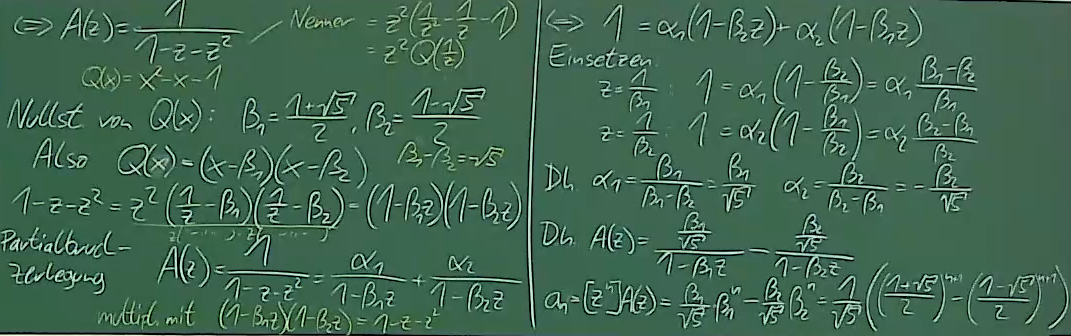 ⇔ A(z) = 1/(1-z-z²)
Nenner = z²(1/z² - 1/z - 1)
= z² Q(1/z)
Q(x) = x² - x - 1
Nullst von Q(x): β₁ = (1+√5)/2, β₂ = (1-√5)/2
Also Q(x) = (x-β₁)(x-β₂)
β₁-β₂ = √5
1-z-z² = z²(1/z - β₁)(1/z - β₂) = (1-β₁z)(1-β₂z)
Partialbruch-
zerlegung
A(z) = 1/(1-z-z²) = α₁/(1-β₁z) + α₂/(1-β₂z)
multipl. mit (1-β₁z)(1-β₂z) = 1-z-z²
⇔ 1 = α₁(1-β₂z) + α₂(1-β₁z)
Einsetzen:
z = 1/β₁ : 1 = α₁(1 - β₂/β₁) = α₁ (β₁-β₂)/β₁
z = 1/β₂ : 1 = α₂(1 - β₁/β₂) = α₂ (β₂-β₁)/β₂
Dh. α₁ = β₁/(β₁-β₂) = β₁/√5 α₂ = β₂/(β₂-β₁) = - β₂/√5
Dh. A(z) = (β₁/√5)/(1-β₁z) - (β₂/√5)/(1-β₂z)
aₙ = [zⁿ]A(z) = β₁/√5 β₁ⁿ - β₂/√5 β₂ⁿ = 1/√5 (((1+√5)/2)ⁿ⁺¹ - ((1-√5)/2)ⁿ⁺¹)